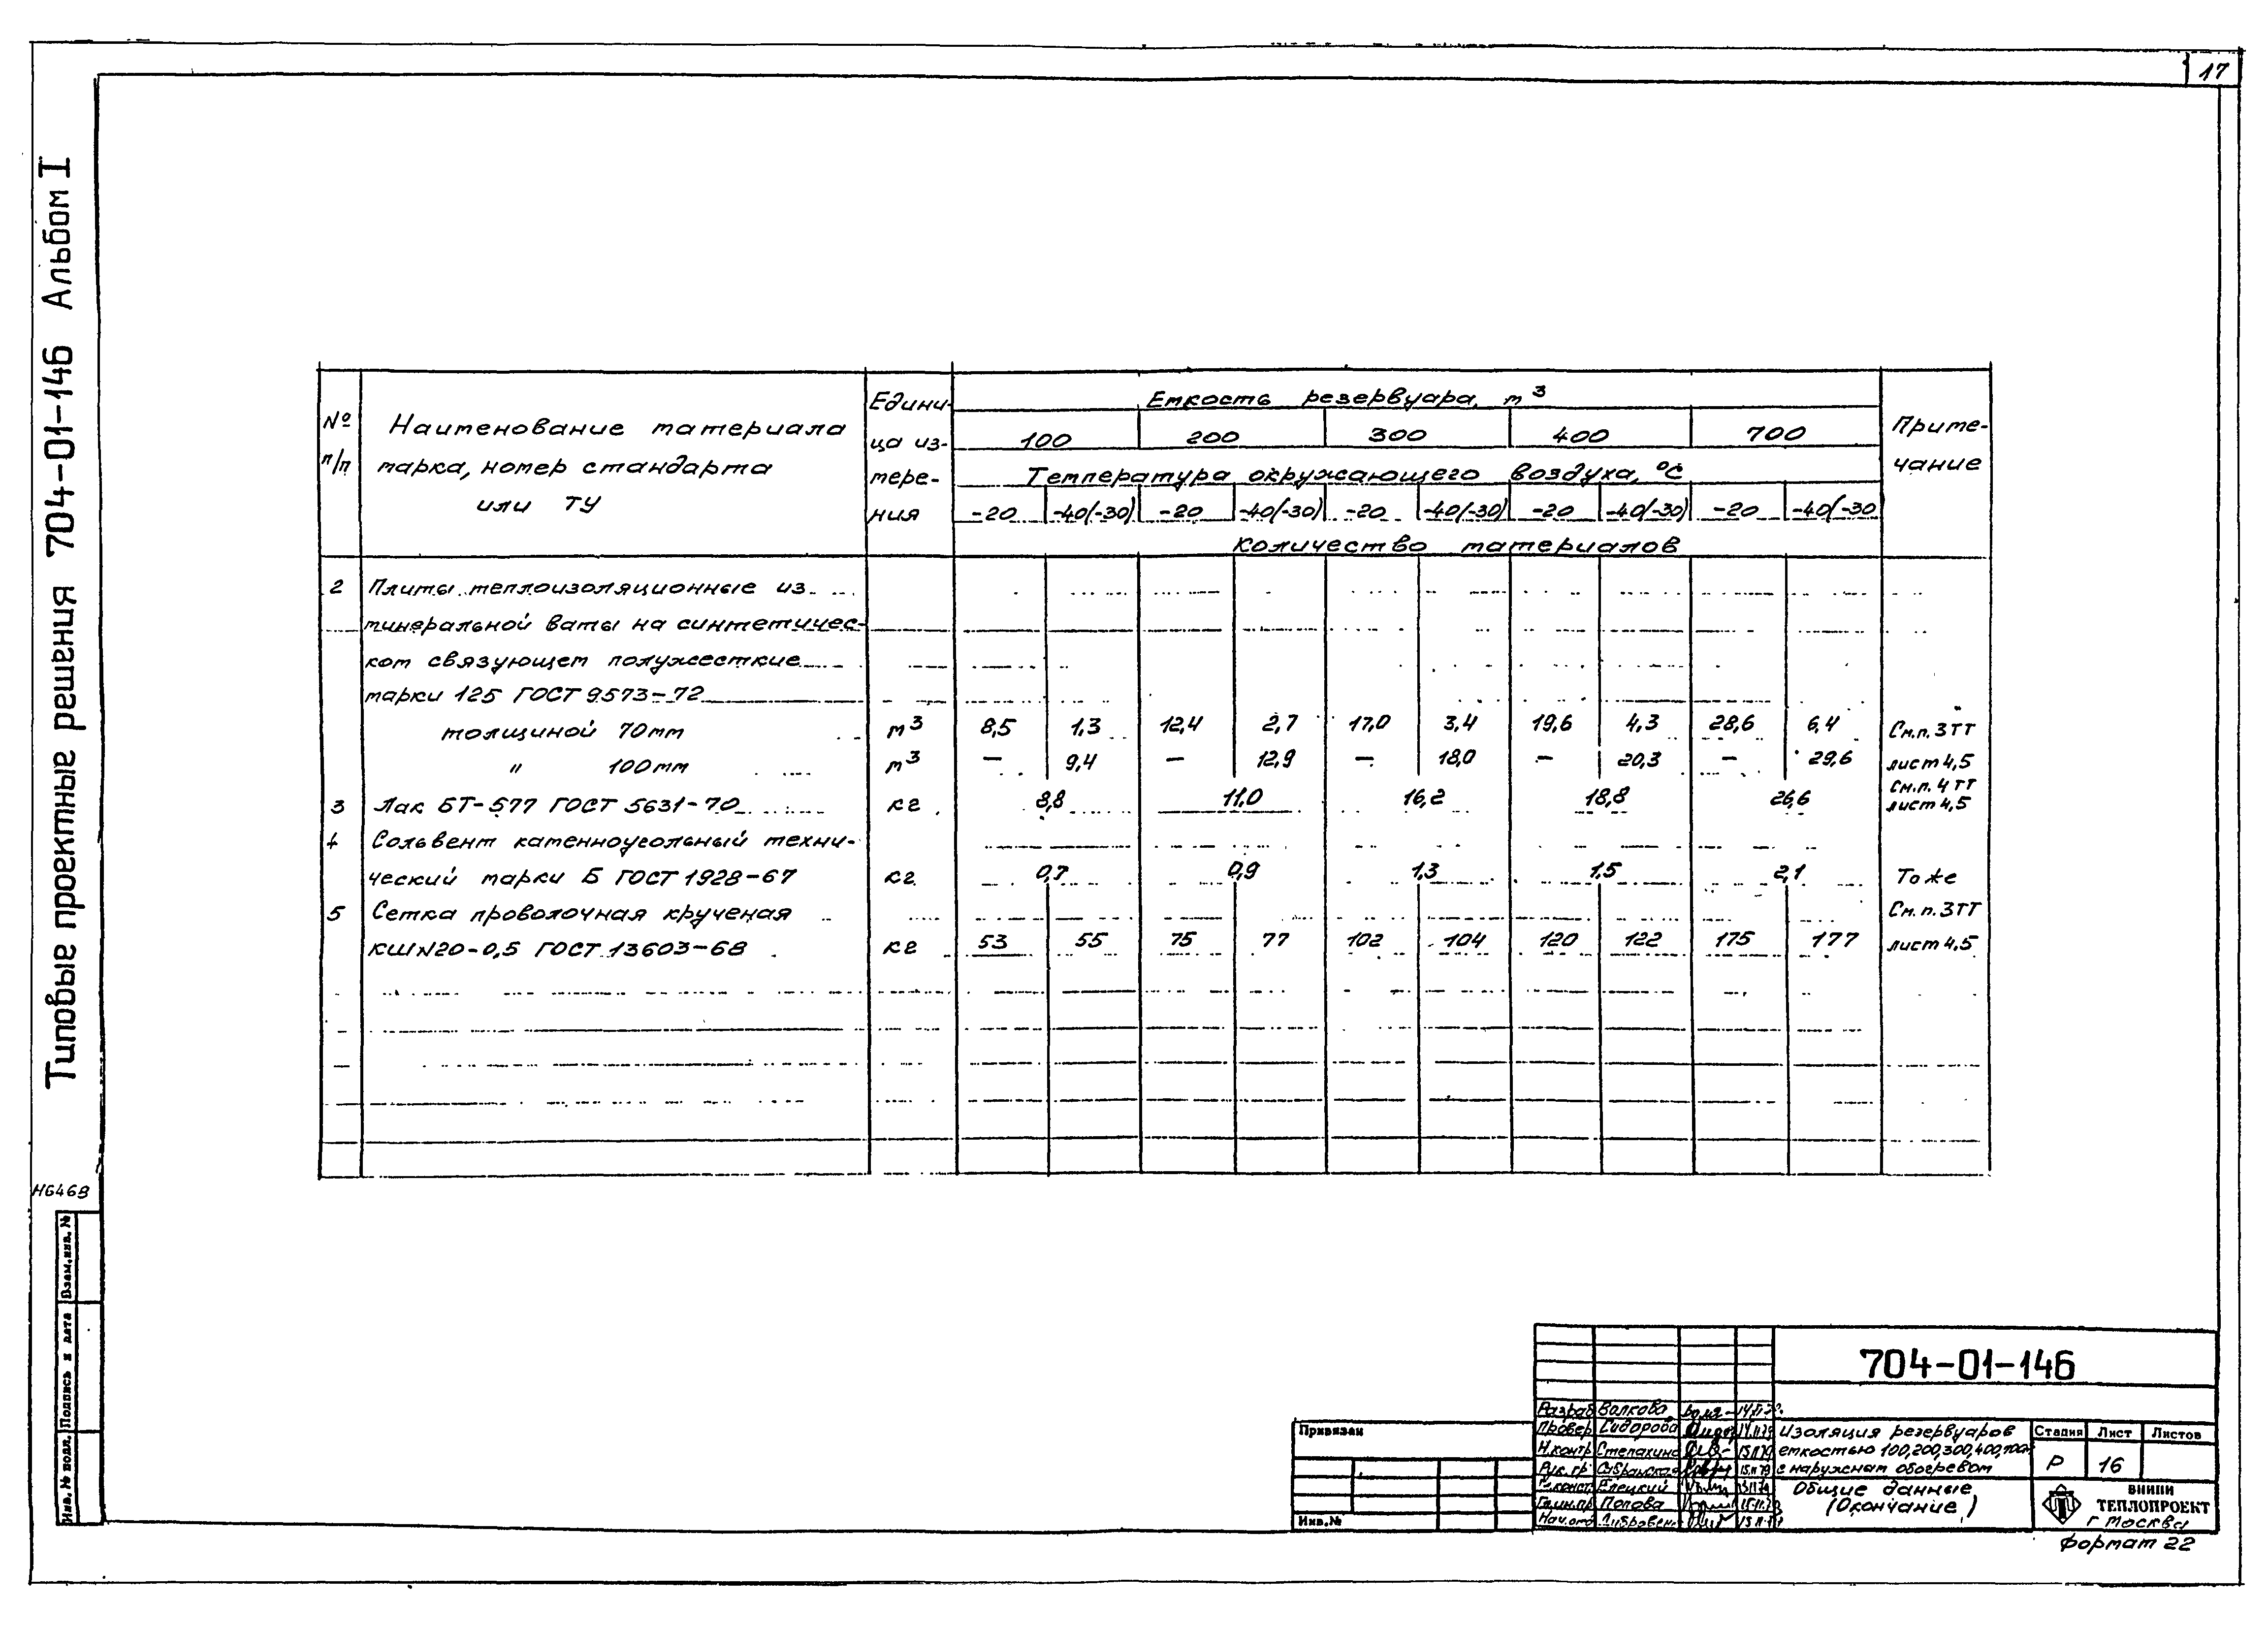 17
Типовые проектные решения 704-01-146 Альбом I
№ п/п
Наименование материала
марка, номер стандарта
или ТУ
Едини-
ца из-
мере-
ния
Емкость резервуара, м³
Приме-
чание
100 200 300 400 700
Температура окружающего воздуха, °С
-20 -40(-30) -20 -40(-30) -20 -40(-30) -20 -40(-30) -20 -40(-30
Количество материалов
2 Плиты теплоизоляционные из
минеральной ваты на синтетичес-
ком связующем полужесткие
марки 125 ГОСТ 9573-72
толщиной 70мм м³ 8,5 1,3 12,4 2,7 17,0 3,4 19,6 4,3 28,6 6,4 См.п.3ТТ
" 100мм м³ — 9,4 — 12,9 — 18,0 — 20,3 — 29,6 лист 4,5
См.п.4ТТ
3 Лак БТ-577 ГОСТ 5631-70 кг 8,8 11,0 16,2 18,8 26,6 лист 4,5
4 Сольвент каменноугольный техни-
ческий марки Б ГОСТ 1928-67 кг 0,7 0,9 1,3 1,5 2,1 То же
5 Сетка проволочная крученая См.п.3ТТ
КШ№20-0,5 ГОСТ 13603-68 кг 53 55 75 77 102 104 120 122 175 177 лист 4,5
Н6468
Инв.№ подл. Подпись и дата Взам.инв.№
Привязан
Инв.№
704-01-146
Разраб Волкова
Провер Сидорова
Н.контр Степахина
Рук.гр
Гл.конст Елецкий
Гл.инж.пр Попова
Нач.отд
Изоляция резервуаров
емкостью 100,200,300,400,700м³
с наружным обогревом
Стадия Лист Листов
Р 16
Общие данные
(Окончание)
ВНИПИ
ТЕПЛОПРОЕКТ
г Москва
Формат 22